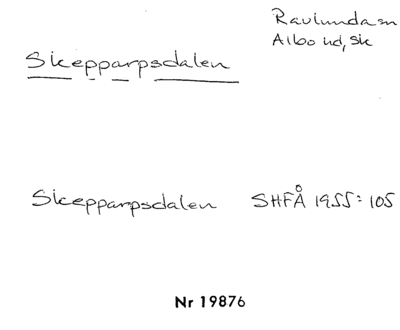 Ravlunda sn
Albo hd, Sk
Skepparpsdalen
Skepparpsdalen SHFÅ 1955:105
Nr 19876